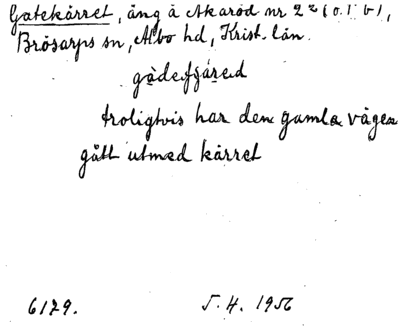 Gatekärret, äng å Akaröd nr 2² (o. 1 b),
Brösarps sn, Albo hd, Krist. län.
gàdefjàred
troligtvis har den gamla vägen
gått utmed kärret
6179. 5.4. 1956